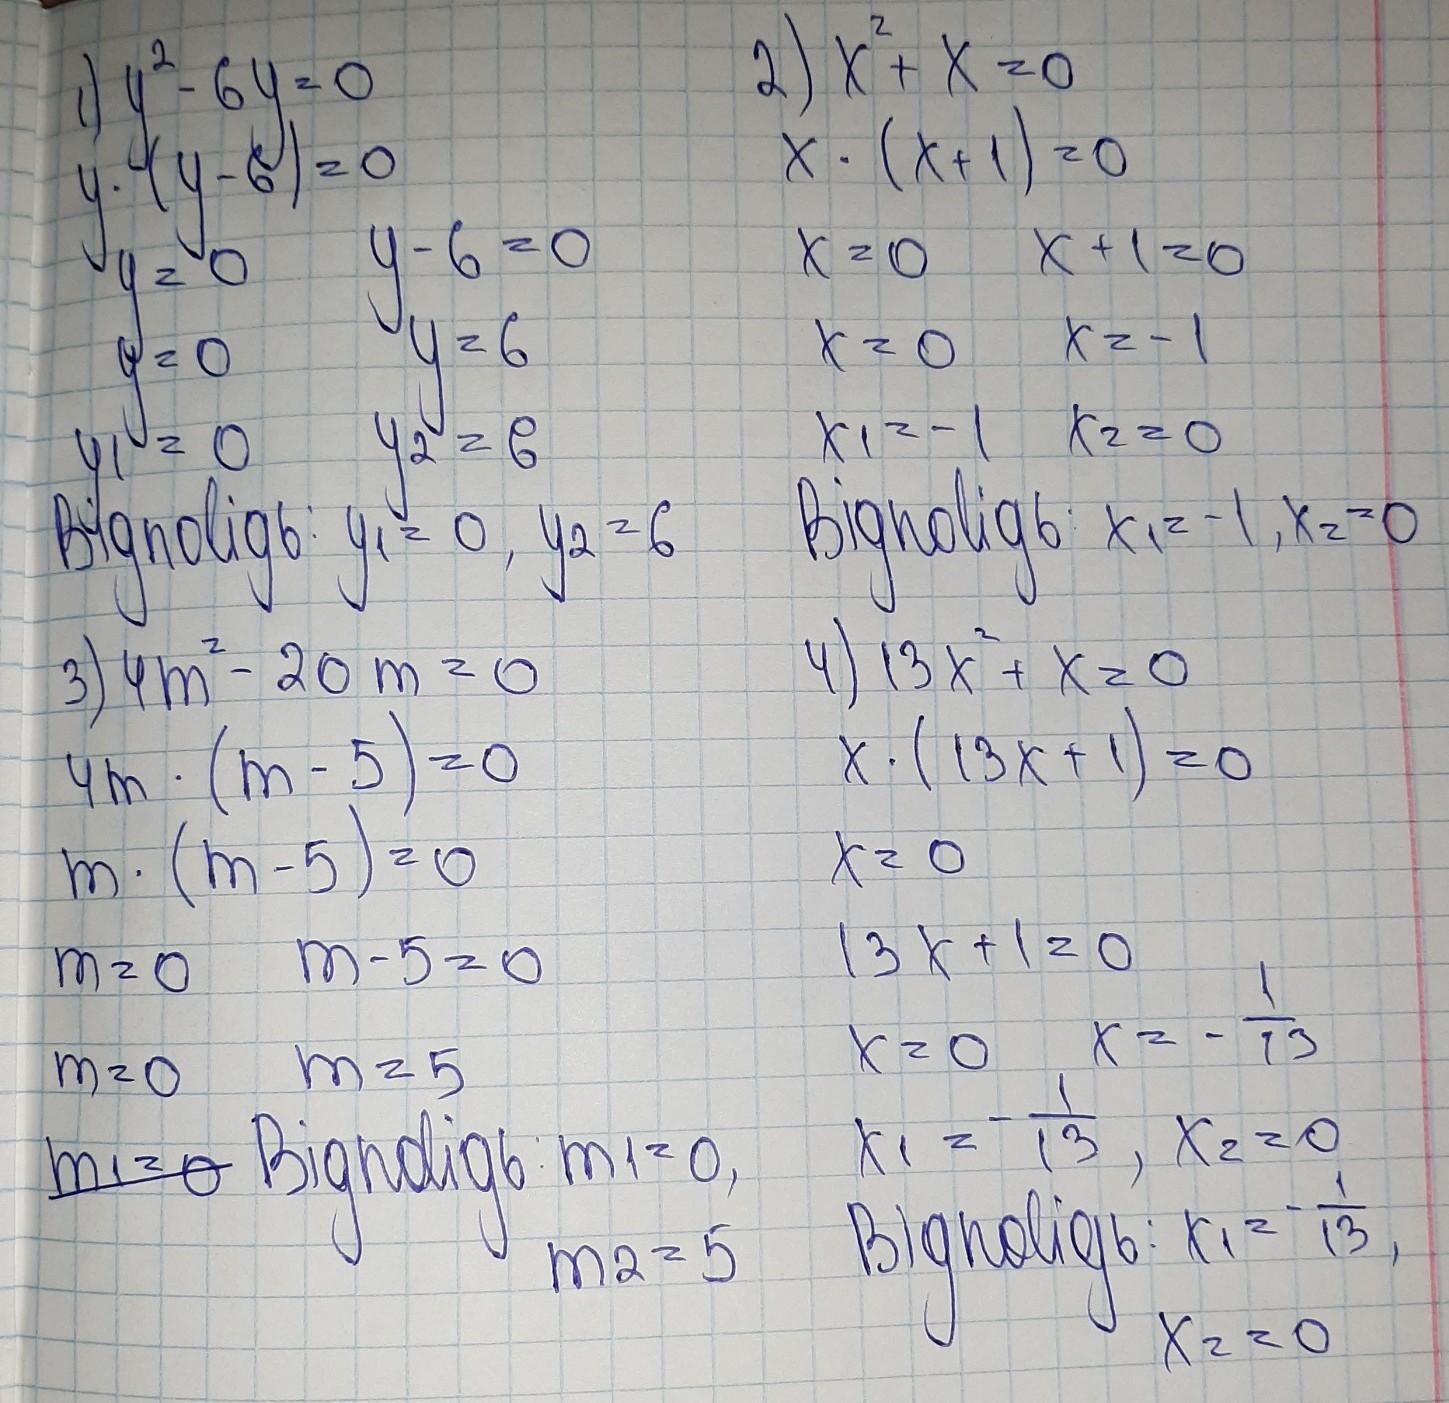 1) y² - 6y = 0
y · (y - 6) = 0
y = 0 y - 6 = 0
y = 0 y = 6
y1 = 0 y2 = 6
Відповідь: y1 = 0, y2 = 6
2) x² + x = 0
x · (x + 1) = 0
x = 0 x + 1 = 0
x = 0 x = -1
x1 = -1 x2 = 0
Відповідь: x1 = -1, x2 = 0
3) 4m² - 20m = 0
4m · (m - 5) = 0
m · (m - 5) = 0
m = 0 m - 5 = 0
m = 0 m = 5
m1 = 0 Відповідь: m1 = 0,
m2 = 5
4) 13x² + x = 0
x · (13x + 1) = 0
x = 0
13x + 1 = 0
x = 0 x = -1/13
x1 = -1/13, x2 = 0
Відповідь: x1 = -1/13,
x2 = 0